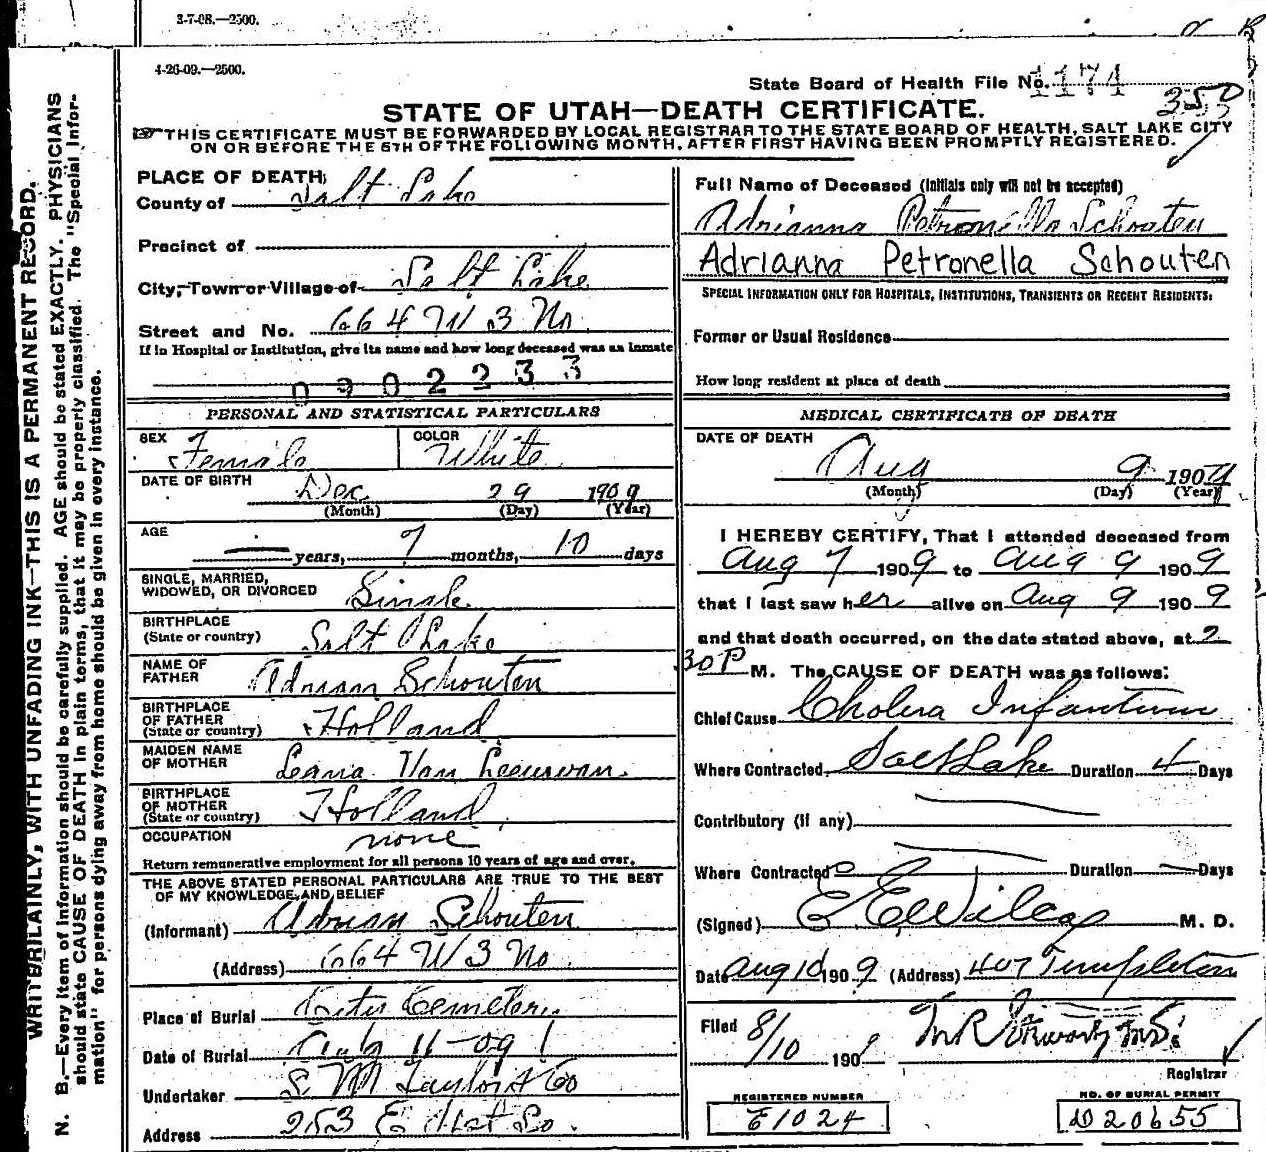 3-7-08.—2500.
4-26-09.—2500.
State Board of Health File No. 1174
350
STATE OF UTAH—DEATH CERTIFICATE.
THIS CERTIFICATE MUST BE FORWARDED BY LOCAL REGISTRAR TO THE STATE BOARD OF HEALTH, SALT LAKE CITY
ON OR BEFORE THE 5TH OF THE FOLLOWING MONTH, AFTER FIRST HAVING BEEN PROMPTLY REGISTERED.
WRITE PLAINLY, WITH UNFADING INK—THIS IS A PERMANENT RECORD.
N. B.—Every item of information should be carefully supplied. AGE should be stated EXACTLY. PHYSICIANS
should state CAUSE OF DEATH in plain terms, that it may be properly classified. The "Special Infor-
mation" for persons dying away from home should be given in every instance.
PLACE OF DEATH:
County of Salt Lake
Precinct of
City, Town or Village of Salt Lake
Street and No. 664 W 3 No
If in Hospital or Institution, give its name and how long deceased was an inmate
0902233
PERSONAL AND STATISTICAL PARTICULARS
SEX Female COLOR White
DATE OF BIRTH Dec 29 1909
(Month) (Day) (Year)
AGE — years, 7 months, 10 days
SINGLE, MARRIED,
WIDOWED, OR DIVORCED Single
BIRTHPLACE
(State or country) Salt Lake
NAME OF
FATHER Adrian Schouten
BIRTHPLACE
OF FATHER
(State or country) Holland
MAIDEN NAME
OF MOTHER Leana Van Leeuwan
BIRTHPLACE
OF MOTHER
(State or country) Holland
OCCUPATION none
Return remunerative employment for all persons 10 years of age and over.
THE ABOVE STATED PERSONAL PARTICULARS ARE TRUE TO THE BEST
OF MY KNOWLEDGE AND BELIEF
(Informant) Adrian Schouten
(Address) 664 W 3 No
Place of Burial City Cemetery
Date of Burial 11-09
Undertaker S. M Taylor & Co
Address 253 E 1st So.
Full Name of Deceased (Initials only will not be accepted)
Adrianna Petronella Schouten
Adrianna Petronella Schouten
SPECIAL INFORMATION ONLY FOR HOSPITALS, INSTITUTIONS, TRANSIENTS OR RECENT RESIDENTS:
Former or Usual Residence
How long resident at place of death
MEDICAL CERTIFICATE OF DEATH
DATE OF DEATH
Aug 9 1909
(Month) (Day) (Year)
I HEREBY CERTIFY, That I attended deceased from
Aug 7 1909 to Aug 9 1909
that I last saw her alive on Aug 9 1909
and that death occurred, on the date stated above, at 2
30 P M. The CAUSE OF DEATH was as follows:
Chief Cause Cholera Infantum
Where Contracted Salt Lake Duration 4 Days
Contributory (if any)
Where Contracted Duration — Days
(Signed) E E Wilcox M. D.
Date Aug 10 1909 (Address) 407 Templeton
Filed 8/10 1909
Registrar
REGISTERED NUMBER
E1024
NO. OF BURIAL PERMIT
D20655